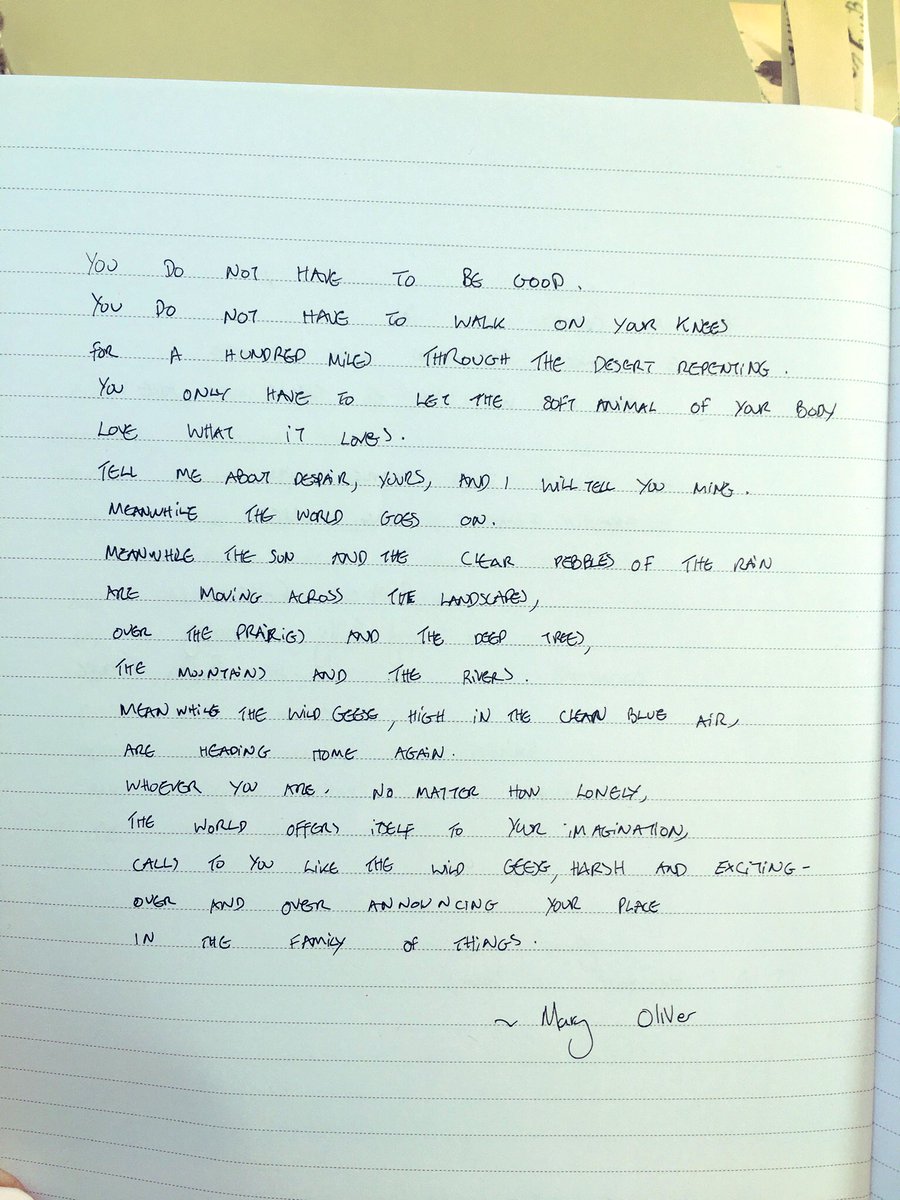 YOU DO NOT HAVE TO BE GOOD.
YOU DO NOT HAVE TO WALK ON YOUR KNEES
FOR A HUNDRED MILES THROUGH THE DESERT REPENTING.
YOU ONLY HAVE TO LET THE SOFT ANIMAL OF YOUR BODY
LOVE WHAT IT LOVES.
TELL ME ABOUT DESPAIR, YOURS, AND I WILL TELL YOU MINE.
MEANWHILE THE WORLD GOES ON.
MEANWHILE THE SUN AND THE CLEAR PEBBLES OF THE RAIN
ARE MOVING ACROSS THE LANDSCAPES,
OVER THE PRAIRIES AND THE DEEP TREES,
THE MOUNTAINS AND THE RIVERS.
MEANWHILE THE WILD GEESE, HIGH IN THE CLEAN BLUE AIR,
ARE HEADING HOME AGAIN.
WHOEVER YOU ARE. NO MATTER HOW LONELY,
THE WORLD OFFERS ITSELF TO YOUR IMAGINATION,
CALLS TO YOU LIKE THE WILD GEESE, HARSH AND EXCITING-
OVER AND OVER ANNOUNCING YOUR PLACE
IN THE FAMILY OF THINGS.
~ Mary Oliver